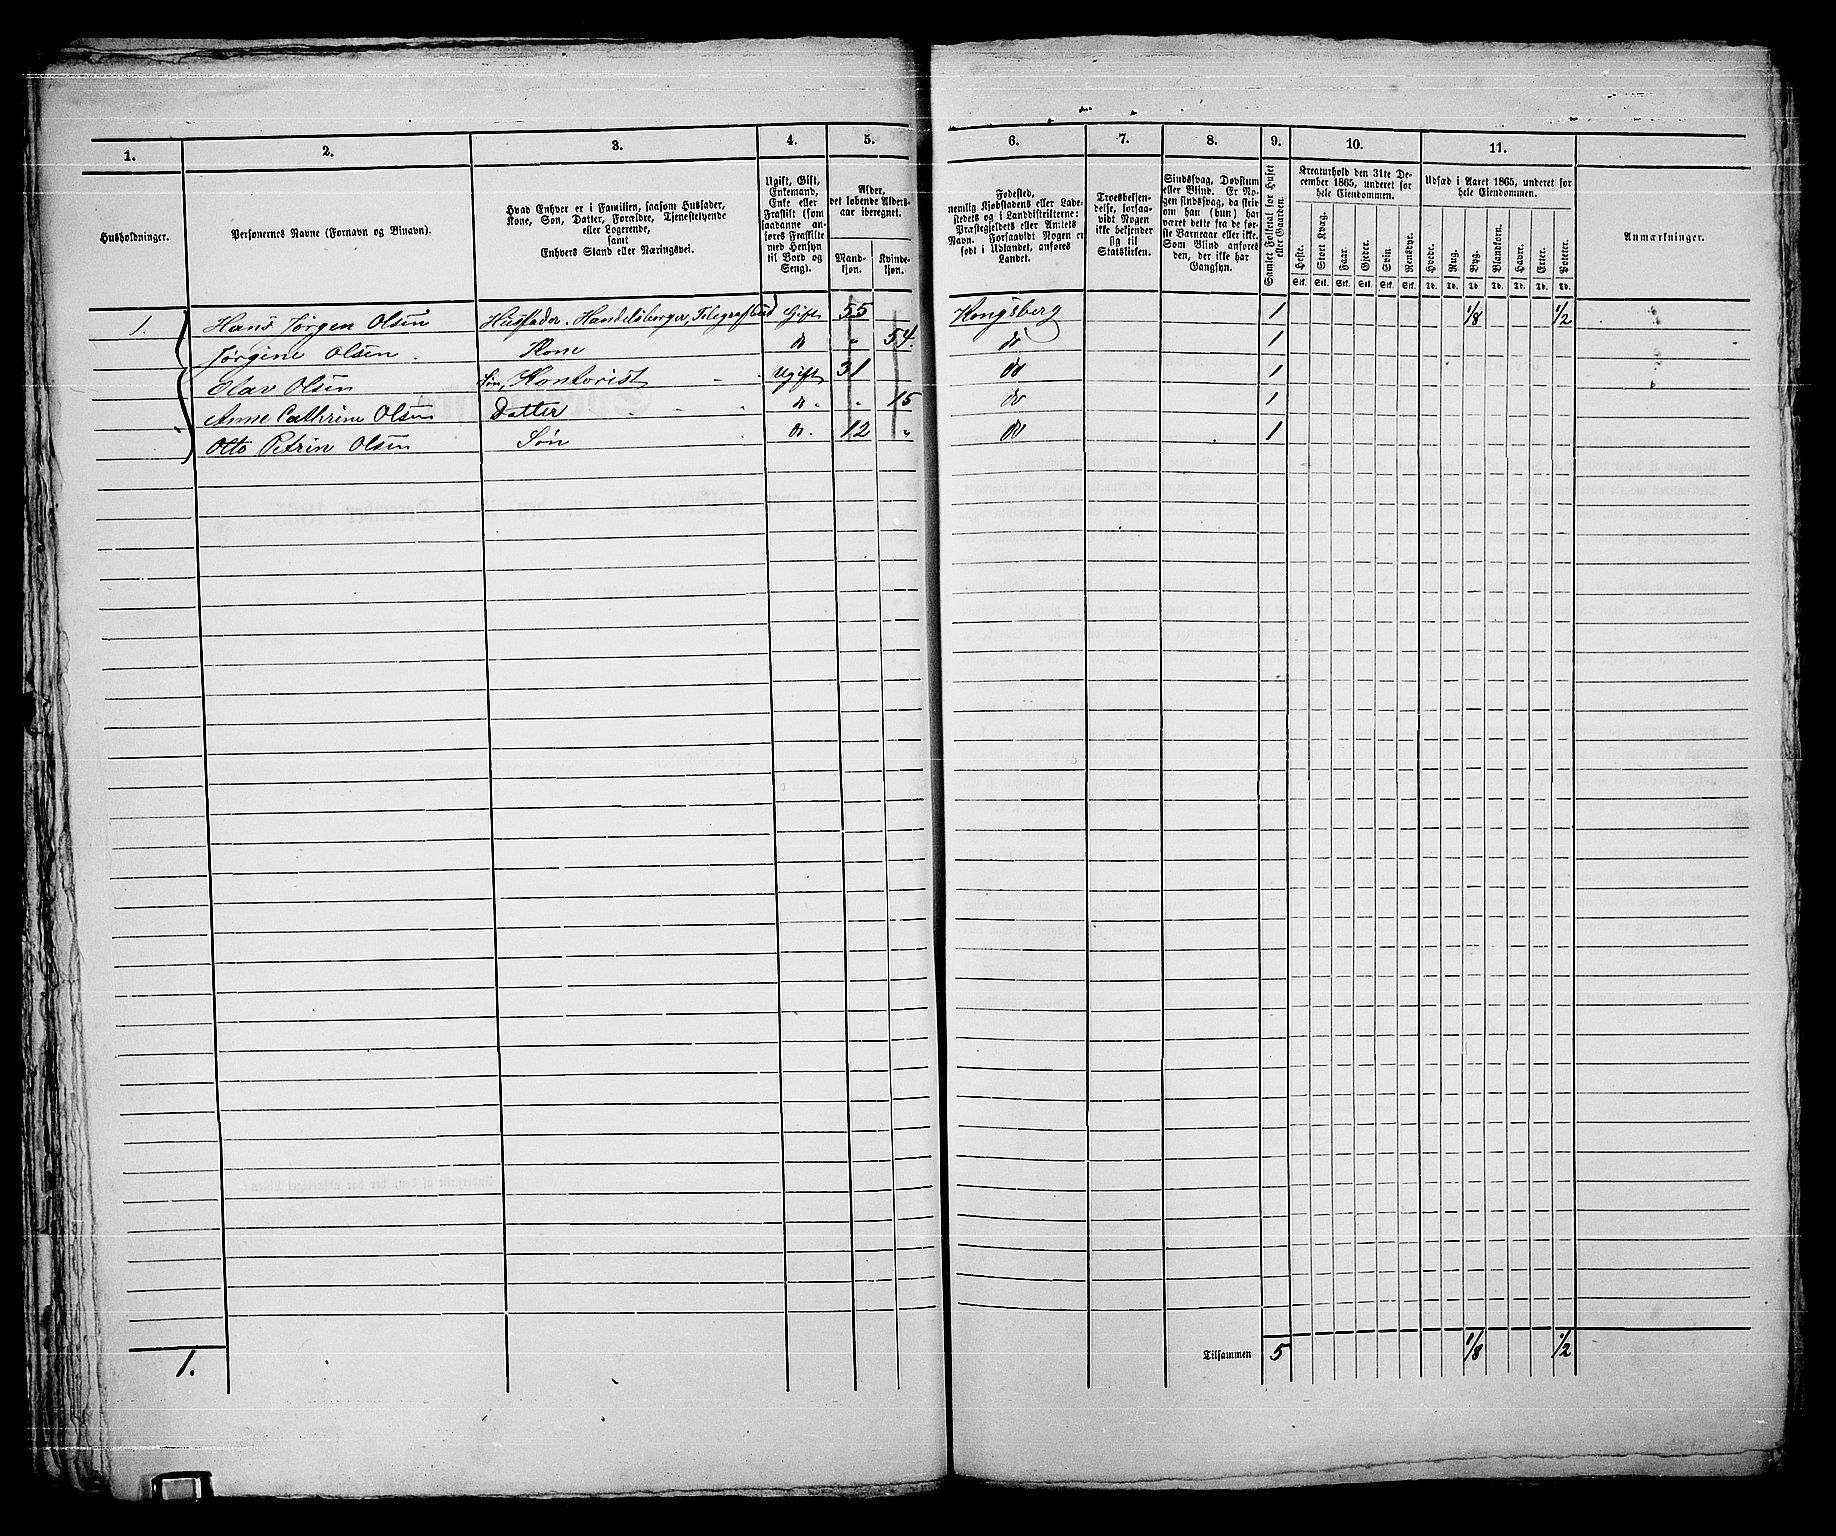 1. 2. 3. 4. 5. 6. 7. 8. 9. 10. 11.
Husholdninger.
Personernes Navne (Fornavn og Binavn).
Hvad Enhver er i Familien, saasom Husfader,
Kone, Søn, Datter, Forældre, Tjenestetyende
eller Logerende,
samt
Enhvers Stand eller Næringsvei.
Ugift, Gift,
Enkemand,
Enke eller
Fraskilt (som
saadanne an-
føres Fraskilte
med Hensyn
til Bord og
Seng).
Alder,
det løbende Alders-
aar iberegnet.
Mand-
kjøn.
Kvinde-
kjøn.
Fødested,
nemlig Kjøbstadens eller Lade-
stedets og i Landdistrikterne:
Præstegjeldets eller Amtets
Navn. Forsaavidt Nogen er
født i Udlandet, anføres
Landet.
Troesbekjen-
delse, forsaa-
vidt Nogen
ikke bekjender
sig til
Statskirken.
Sindssvag, Døvstum
eller Blind. Er No-
gen sindssvag, da skriv
om han (hun) har
været dette fra de før-
ste Barneaar eller ikke.
Som Blind anføres
den, der ikke har
Gangsyn.
Samlet Folketal for Huset
eller Gaarden.
Kreaturhold den 31te De-
cember 1865, underet for
hele Eiendommen.
Heste. Stort Kvæg. Faar. Gjeder. Svin. Rensdyr.
Stk. Stk. Stk. Stk. Stk. Stk.
Udsæd i Aaret 1865, underet for
hele Eiendommen.
Hvede. Rug. Byg. Blandkorn. Havre. Erter. Poteter.
Td. Td. Td. Td. Td. Td. Td.
Anmærkninger.
1. Hans Jørgen Olsen Husfader. Handelsborger, Telegrafbud Gift 55 Kongsberg 1 1/8 1/2
Jørgine Olsen Kone do " 54. do 1
Olav Olsen Søn, Kontorist Ugift 31 do 1
Anne Cathrine Olsen Datter do. . 15 do 1
Otto Petrin Olsen Søn do. 12 " do 1
1. Tilsammen 5 1/8 1/2